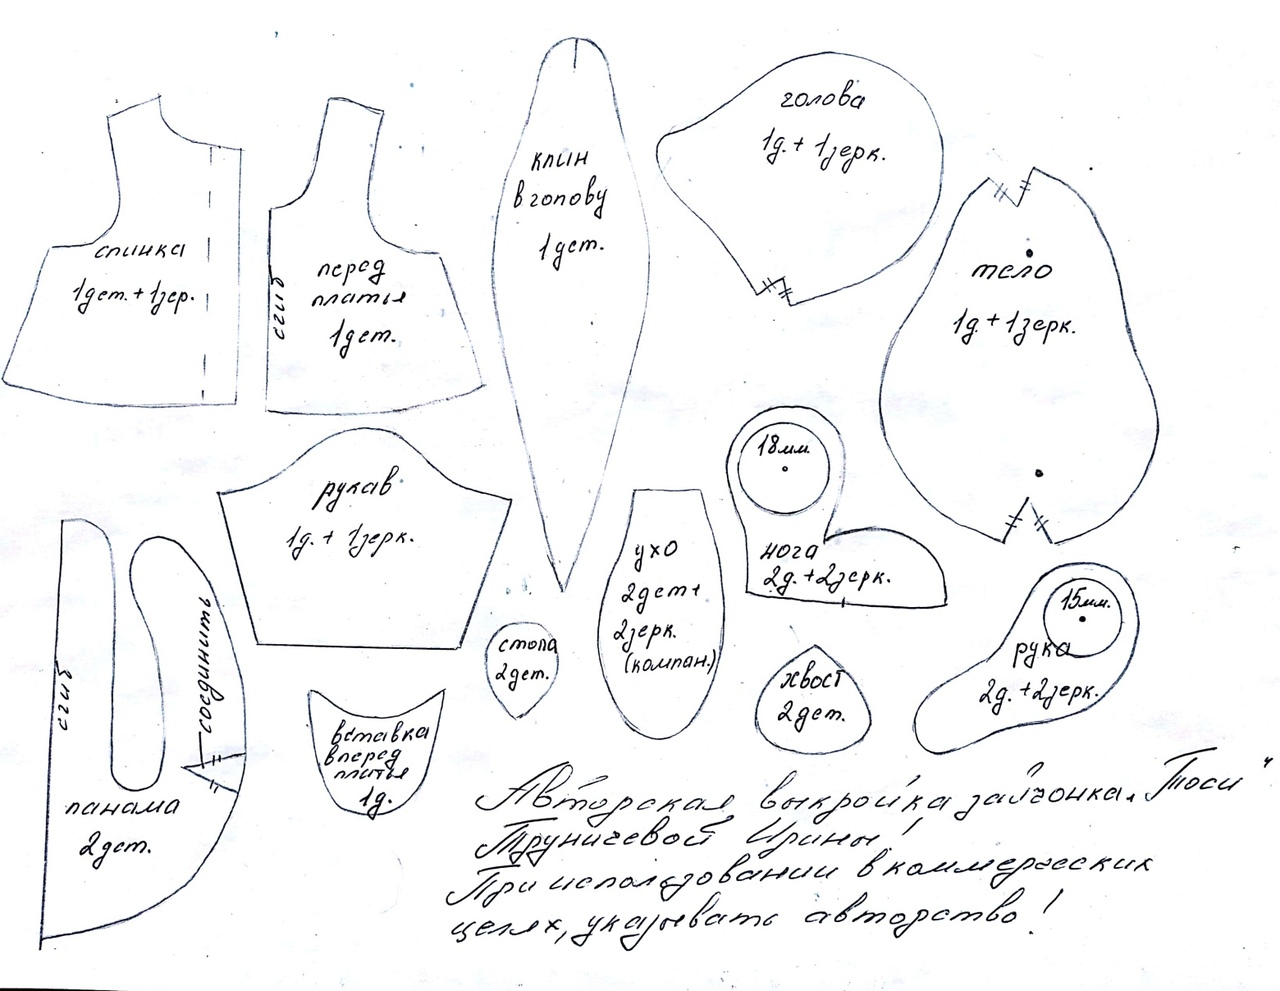 спинка
1дет. + 1зер.
перед
платья
1дет.
сгиб
клин
в голову
1дет.
голова
1д. + 1зерк.
тело
1д. + 1зерк.
рукав
1д. + 1зерк.
18мм.
нога
2д. + 2зерк.
ухо
2дет +
2зерк.
(компан.)
стопа
2дет.
15мм.
рука
2д. + 2зерк.
хвост
2дет.
сгиб
соединить
панама
2дет.
вставка
вперед
платья
1д.
Авторская выкройка зайчонка „Тоси"
Труничевой Ирины!
При использовании в коммерческих
целях, указывать авторство!